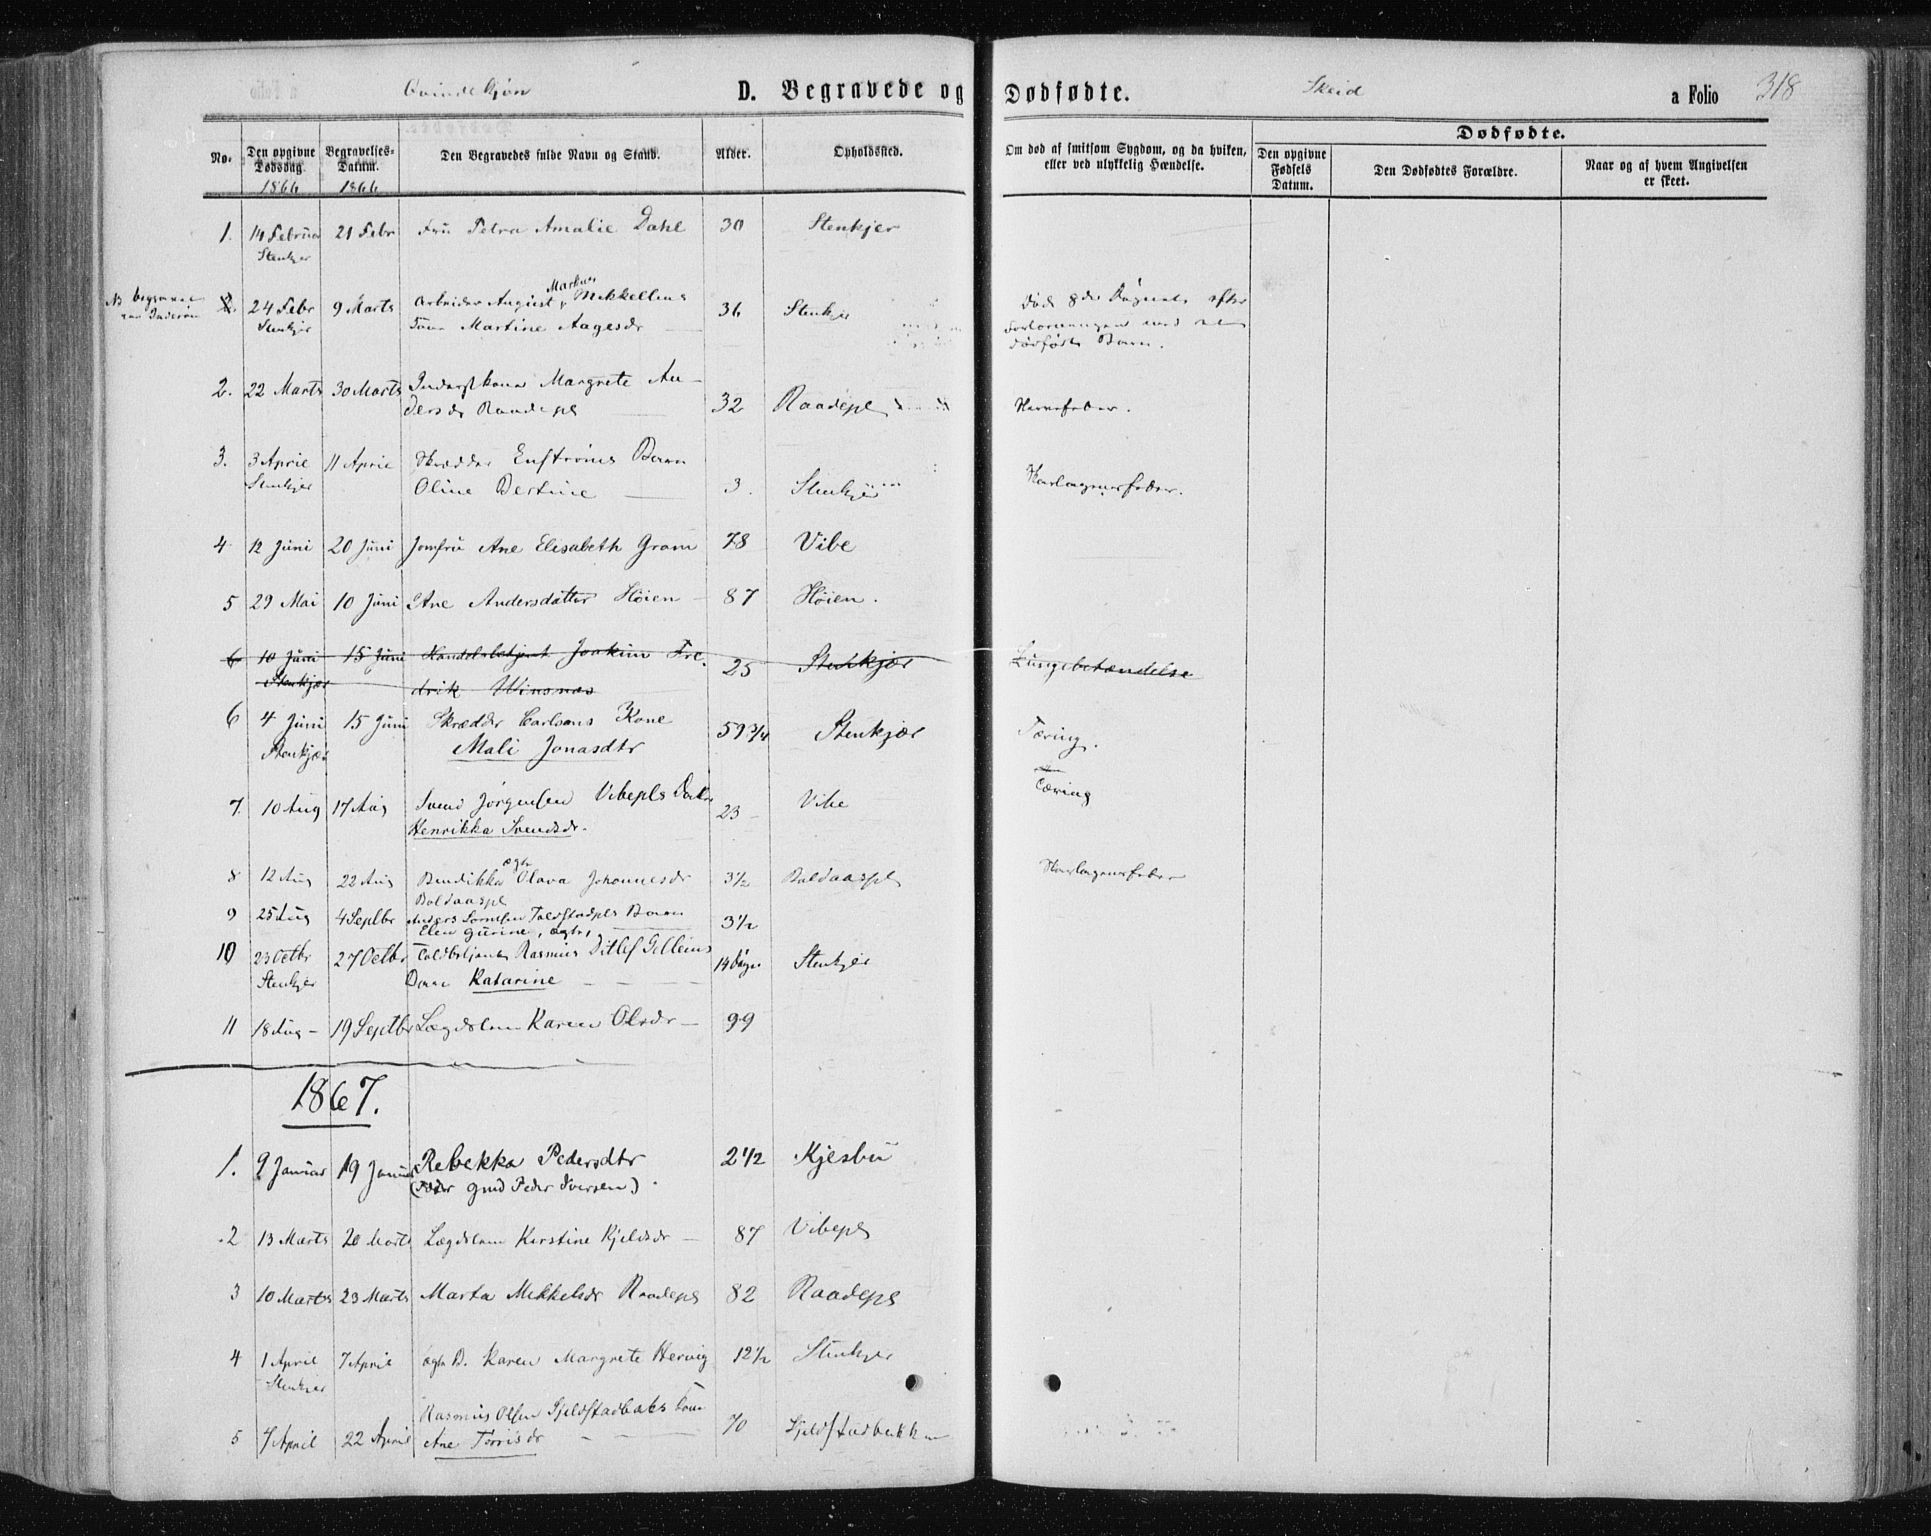 Qvindekjøn D. Begravede og Dødfødte. Skeid a Folio 318
No. Den opgivne Dødsdag 1866 Begravelses-Datum. 1866 Den Begravedes fulde Navn og Stand. Alder. Opholdssted. Om død af smitsom Sygdom, og da hvilken, eller ved ulykkelig Hændelse. Dødfødte.
Den opgivne Fødsels Datum. Den Dødfødtes Forældre. Naar og af hvem Angivelsen er skeet.
1. 14 Februar 21 Febr Fru Petra Amalie Dahl 30 Stenkjer
Stenkjer
Markus
2. 24 Febr 9 Marts Arbeider August Mikkelsens 36 Stenkjer Døde 8de efter
Stenkjer Kone Martine Aagesdr med
dødfødt Barn.
2. 22 Marts 30 Marts Margrete An-
dersdr Raadepl 32 Raadepl
3. 3 April 11 April Skrædder Enstrøms Barn
Stenkjer Oline Bertine 3. Stenkjer Skarlagensfeber.
4 12 Juni 20 Juni Jomfru Ane Elisabeth Gram 78 Vibe
5 29 Mai 10 Juni Ane Andersdatter Høien 87 Høien.
6 10 Juni 15 Juni Handelsbetjent Joakim Fre- 25 Stenkjær Lungebetændelse
Stenkjær drik Winsnæs
6 4 Juni 15 Juni Skrædder Carlsens Kone 59 3/4 Stenkjær Tæring.
Stenkjær Mali Jonasdtr
7. 10 Aug 17 Aug Svend Jørgensen Vibepls Datter 23 Vibe Tæring
Henrikka Svendsdr.
ægte
8 12 Aug 22 Aug Bendikka Olava Johannesdr 3 1/2 Boldaaspl Skarlagensfeber
Boldaaspl
9 25 Aug 4 Septbr Anders Barn 3 1/2
Elen Gurine, ægte,
10 23 Octbr 27 Octbr Rasmus Ditlef 14 Dage Stenkjer
Stenkjer Barn Katarine
11 18 Aug 19 Septbr Lægdslem Karen Olsdr 99
1867.
1. 9 Januar 19 Januar Rebekka Pedersdtr 2 1/2 Kjesbu
(Fader Gmd Peder Iversen).
2 13 Marts 20 Marts Lægdslem Kirstine Kjeldsdr 87 Vibepl
3 10 Marts 23 Marts Marta Mikkelsdr Raadepl 82 Raadepl
4 1 April 7 April ægte B. Karen Margrete Hervig 12 1/2 Stenkjer
Stenkjer
Rasmus Olsen Kone
5 7 April 22 April Ane Torrisdr 70